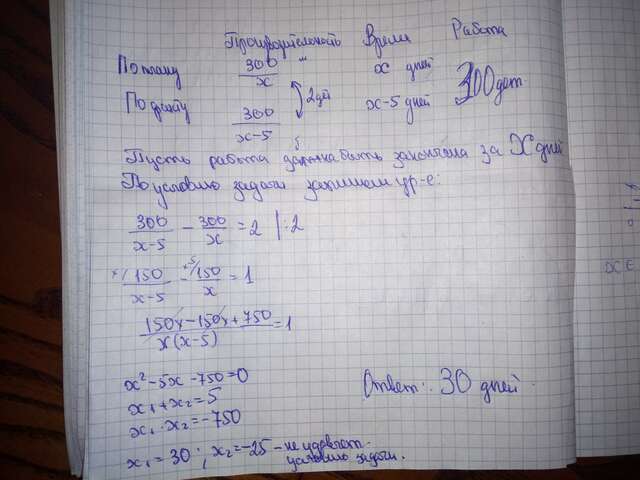 Производительность Время Работа
По плану 300/x " x дней 300 дет
По факту 300/x-5 2 дет x-5 дней
Пусть работа должна быть закончена за X дней
По условию задачи запишем ур-е:
300/x-5 - 300/x = 2 | :2
x/ 150/x-5 - x-5/ 150/x = 1
150x-150x+750/x(x-5) = 1
x²-5x-750=0
x₁+x₂=5
x₁·x₂=-750
x₁=30; x₂=-25 - не удовлет.
условию задачи.
Ответ: 30 дней.